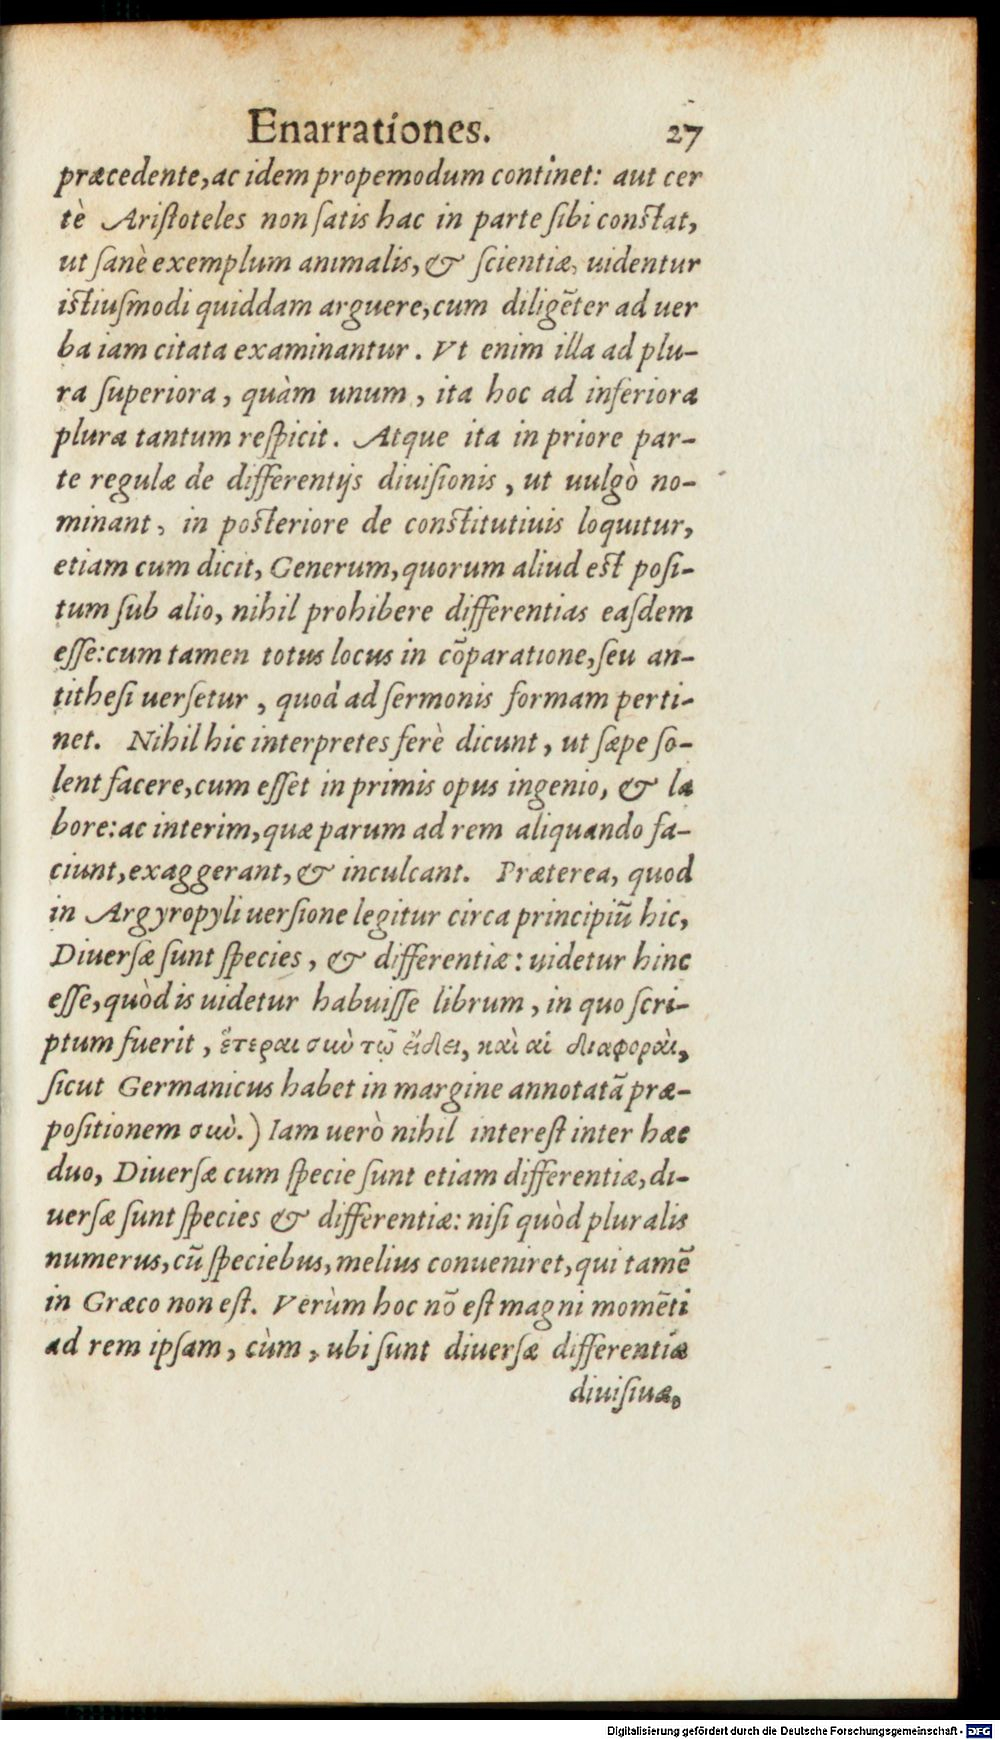 Enarrationes. 27
præcedente, ac idem propemodum continet: aut cer
tè Aristoteles non satis hac in parte sibi constat,
ut sanè exemplum animalis, & scientiæ, uidentur
istiusmodi quiddam arguere, cum diligẽter ad uer
ba iam citata examinantur. Vt enim illa ad plu-
ra superiora, quàm unum, ita hoc ad inferiora
plura tantum respicit. Atque ita in priore par-
te regulæ de differentijs diuisionis, ut uulgò no-
minant, in posteriore de constitutiuis loquitur,
etiam cum dicit, Generum, quorum aliud est posi-
tum sub alio, nihil prohibere differentias easdem
esse: cum tamen totus locus in cõparatione, seu an-
tithesi uersetur, quod ad sermonis formam perti-
net. Nihil hic interpretes ferè dicunt, ut sæpe so-
lent facere, cum esset in primis opus ingenio, & la
bore: ac interim, quæ parum ad rem aliquando fa-
ciunt, exaggerant, & inculcant. Præterea, quod
in Argyropyli uersione legitur circa principiũ hic,
Diuersæ sunt species, & differentiæ: uidetur hinc
esse, quòd is uidetur habuisse librum, in quo scri-
ptum fuerit, ἕτεραι σὺν τῷ εἴδει, καὶ αἱ διαφοραὶ,
sicut Germanicus habet in margine annotatã præ-
positionem σὺν.) Iam uerò nihil interest inter hæc
duo, Diuersæ cum specie sunt etiam differentiæ, di-
uersæ sunt species & differentiæ: nisi quòd pluralis
numerus, cũ speciebus, melius conueniret, qui tamẽ
in Græco non est. Verùm hoc nõ est magni momẽti
ad rem ipsam, cùm, ubi sunt diuersæ differentiæ
diuisiuæ,
Digitalisierung gefördert durch die Deutsche Forschungsgemeinschaft - DFG